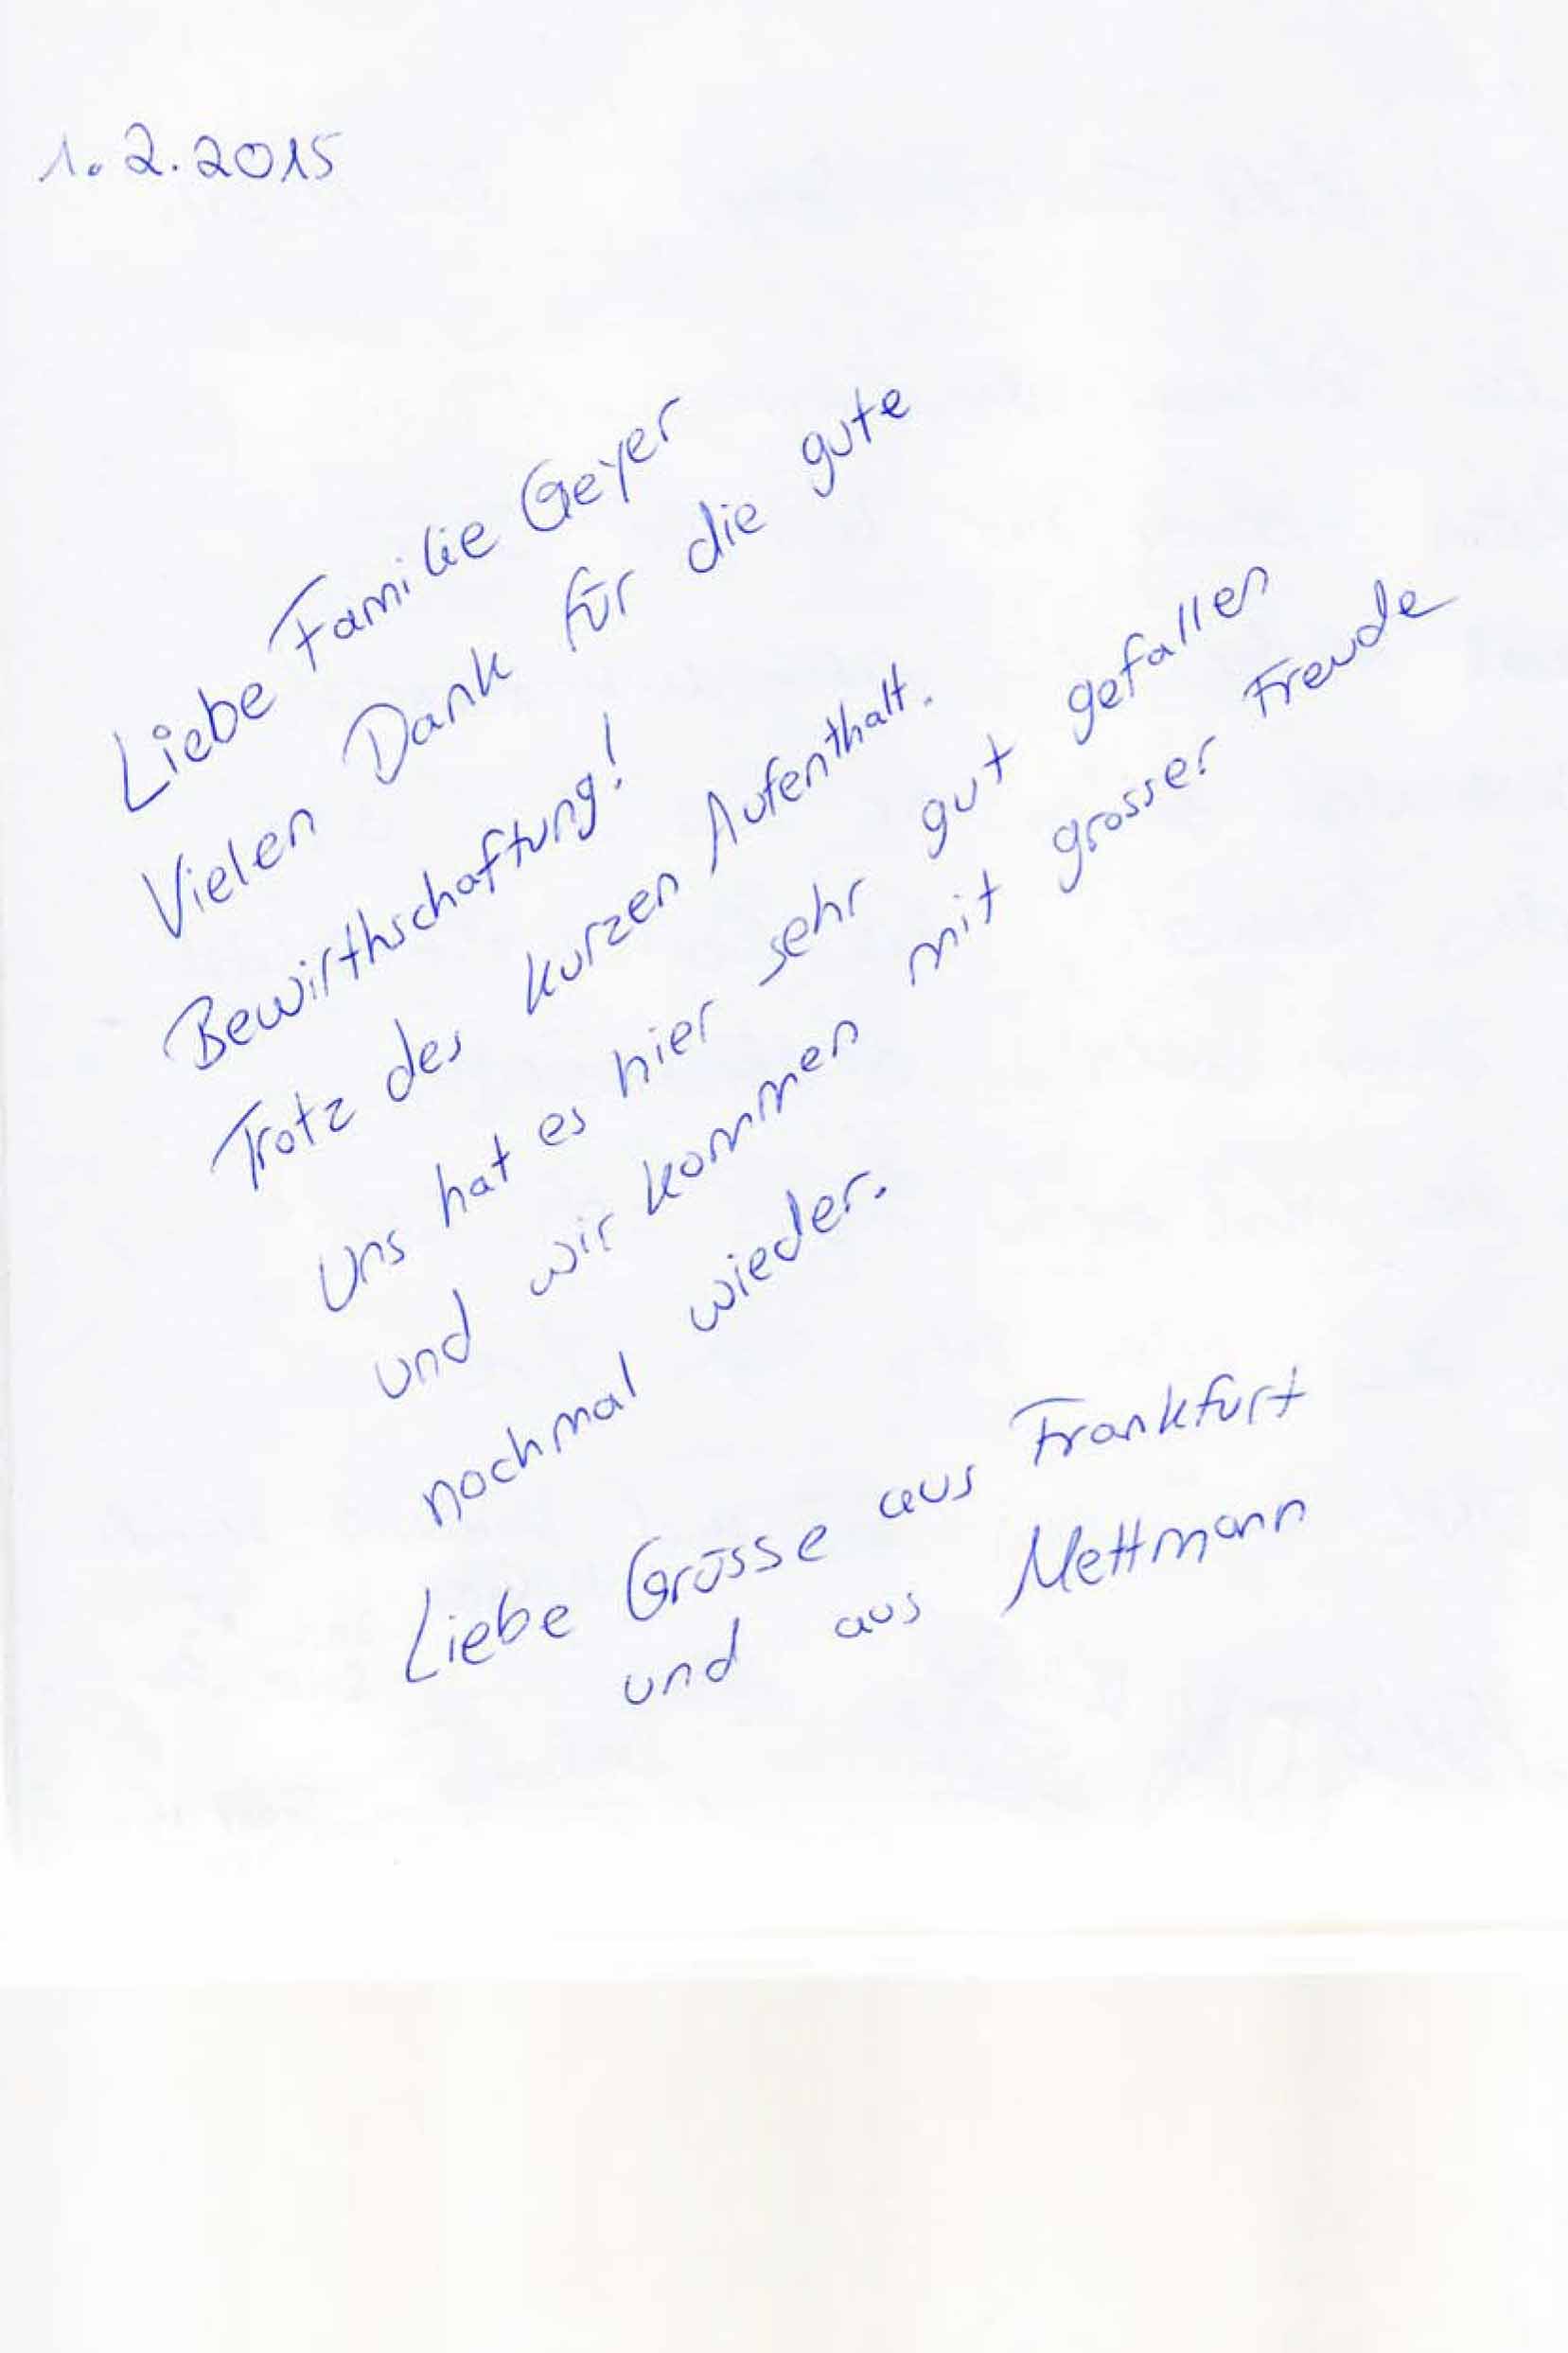 1.2.2015
Liebe Familie Geyer
Vielen Dank für die gute
Bewirthschaftung!
Trotz des kurzen Aufenthalt.
Uns hat es hier sehr gut gefallen
und wir kommen mit grosser Freude
nochmal wieder.
Liebe Grüsse aus Frankfurt
und aus Mettmann